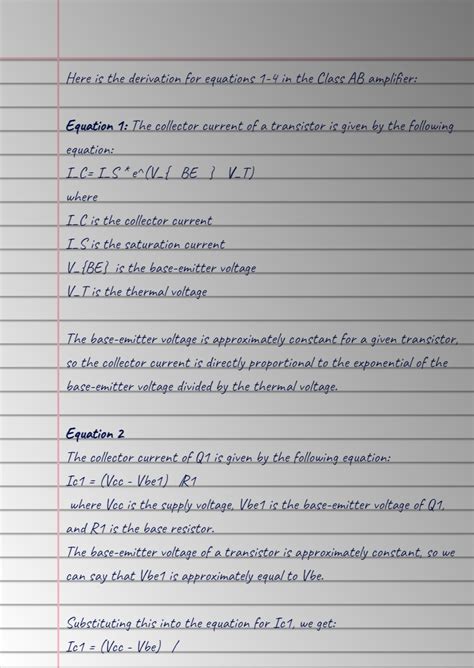 Here is the derivation for equations 1-4 in the Class AB amplifier:
Equation 1: The collector current of a transistor is given by the following
equation:
I_C= I_S * e^(V_{ BE } V_T)
where
I_C is the collector current
I_S is the saturation current
V_{BE} is the base-emitter voltage
V_T is the thermal voltage
The base-emitter voltage is approximately constant for a given transistor,
so the collector current is directly proportional to the exponential of the
base-emitter voltage divided by the thermal voltage.
Equation 2
The collector current of Q1 is given by the following equation:
Ic1 = (Vcc - Vbe1) /R1
where Vcc is the supply voltage, Vbe1 is the base-emitter voltage of Q1,
and R1 is the base resistor.
The base-emitter voltage of a transistor is approximately constant, so we
can say that Vbe1 is approximately equal to Vbe.
Substituting this into the equation for Ic1, we get:
Ic1 = (Vcc - Vbe) /